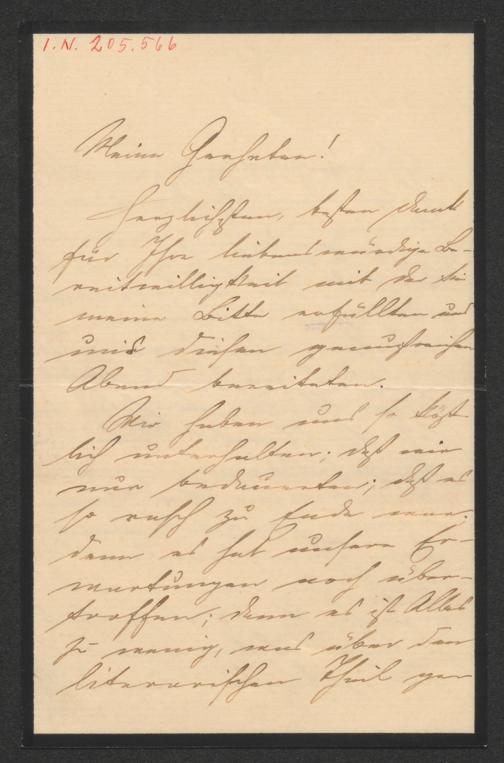 I.N. 205.566
Meine Geehrten!
Herzlichsten, besten Dank
für Ihre liebenswürdige Be-
reitwilligkeit mit der Sie
meine Bitte erfüllten und
uns diesen genußreichen
Abend bereiteten.
Wir haben uns so köst-
lich unterhalten, daß wir
nur bedauerten, daß es
so rasch zu Ende war.
denn es hat unsere Er-
wartungen noch über-
troffen; denn es ist Alles
zu wenig, was über den
literarischen Theil